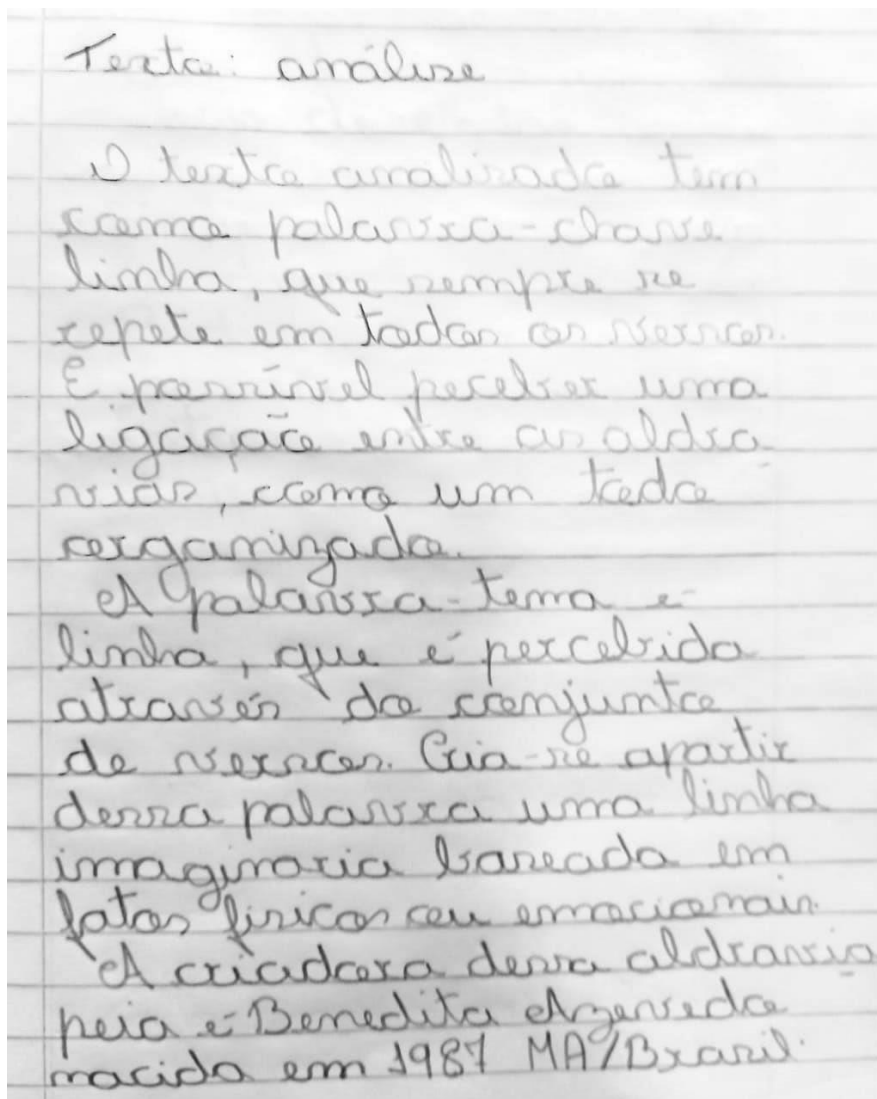 Texto: análise
O texto analisado tem
como palavra-chave
linha, que sempre se
repete em todos os versos.
É possível peceber uma
ligação entre as aldra
vias, como um todo
organizado.
A palavra-tema é
linha, que é percebida
através do conjunto
de versos. Cria-se apartir
dessa palavra uma linha
imaginaria baseada em
fatos físicos ou emocionais.
A criadora dessa aldravia
peia é Benedita Azevedo
nacida em 1987 MA/Brasil.